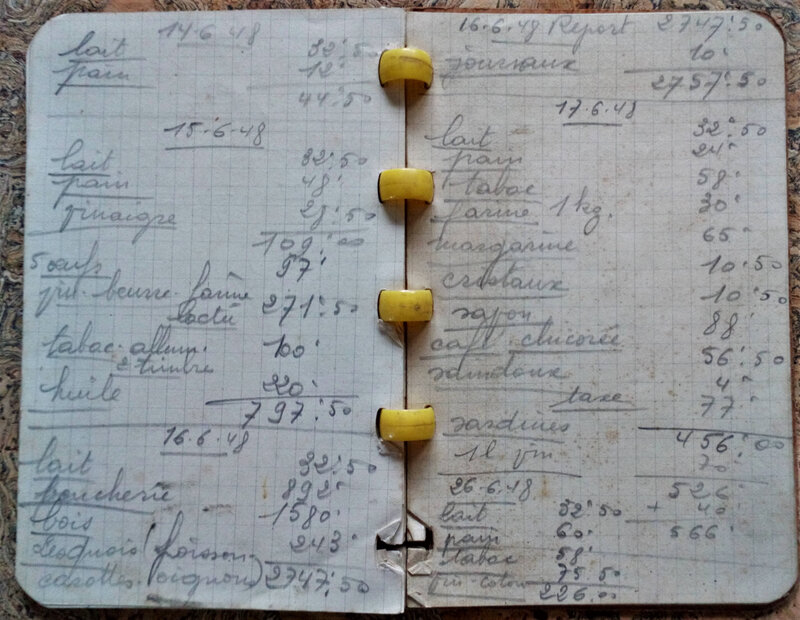 14·6·48
lait 32·50
pain 12"
44·50
15·6·48
lait 32·50
pain 48"
vinaigre 28·50
109·00
5 œufs 97"
vin-beurre-farine
lactée 271·50
tabac-allum.
2 timbre 100"
huile 220"
797·50
16·6·48
lait 32·50
boucherie 892"
bois 1580"
(poisson 243"
carottes-oignon) 2747·50
16·6·48 Report 2747·50
journaux 10"
2757·50
17·6·48
lait 32·50
pain 24"
tabac 58"
farine 1 kg. 30"
margarine 65"
cristaux 10·50
savon 10·50
café chicorée 88"
saindoux 56·50
taxe 4"
sardines 77"
456·00
1 l vin 70"
526"
26·6·48 + 40"
lait 32·50 566"
pain 60"
tabac 58"
75·50
226.00